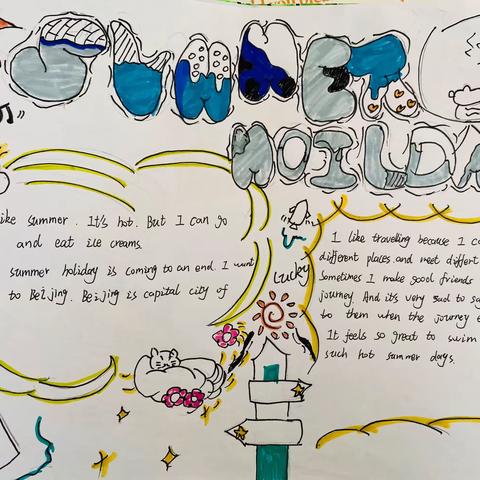 SUMMER
HOILDA
ike summer. It's hot. But I can go
and eat ice creams.
summer holiday is coming to an end. I want
to Beijing. Beijing is capital city of
lucky
I like traveling because I
different places and meet differt
Sometimes I make good friends
journey. And it's very sad to
to them when the journey
It feels so great to swim
such hot summer days.